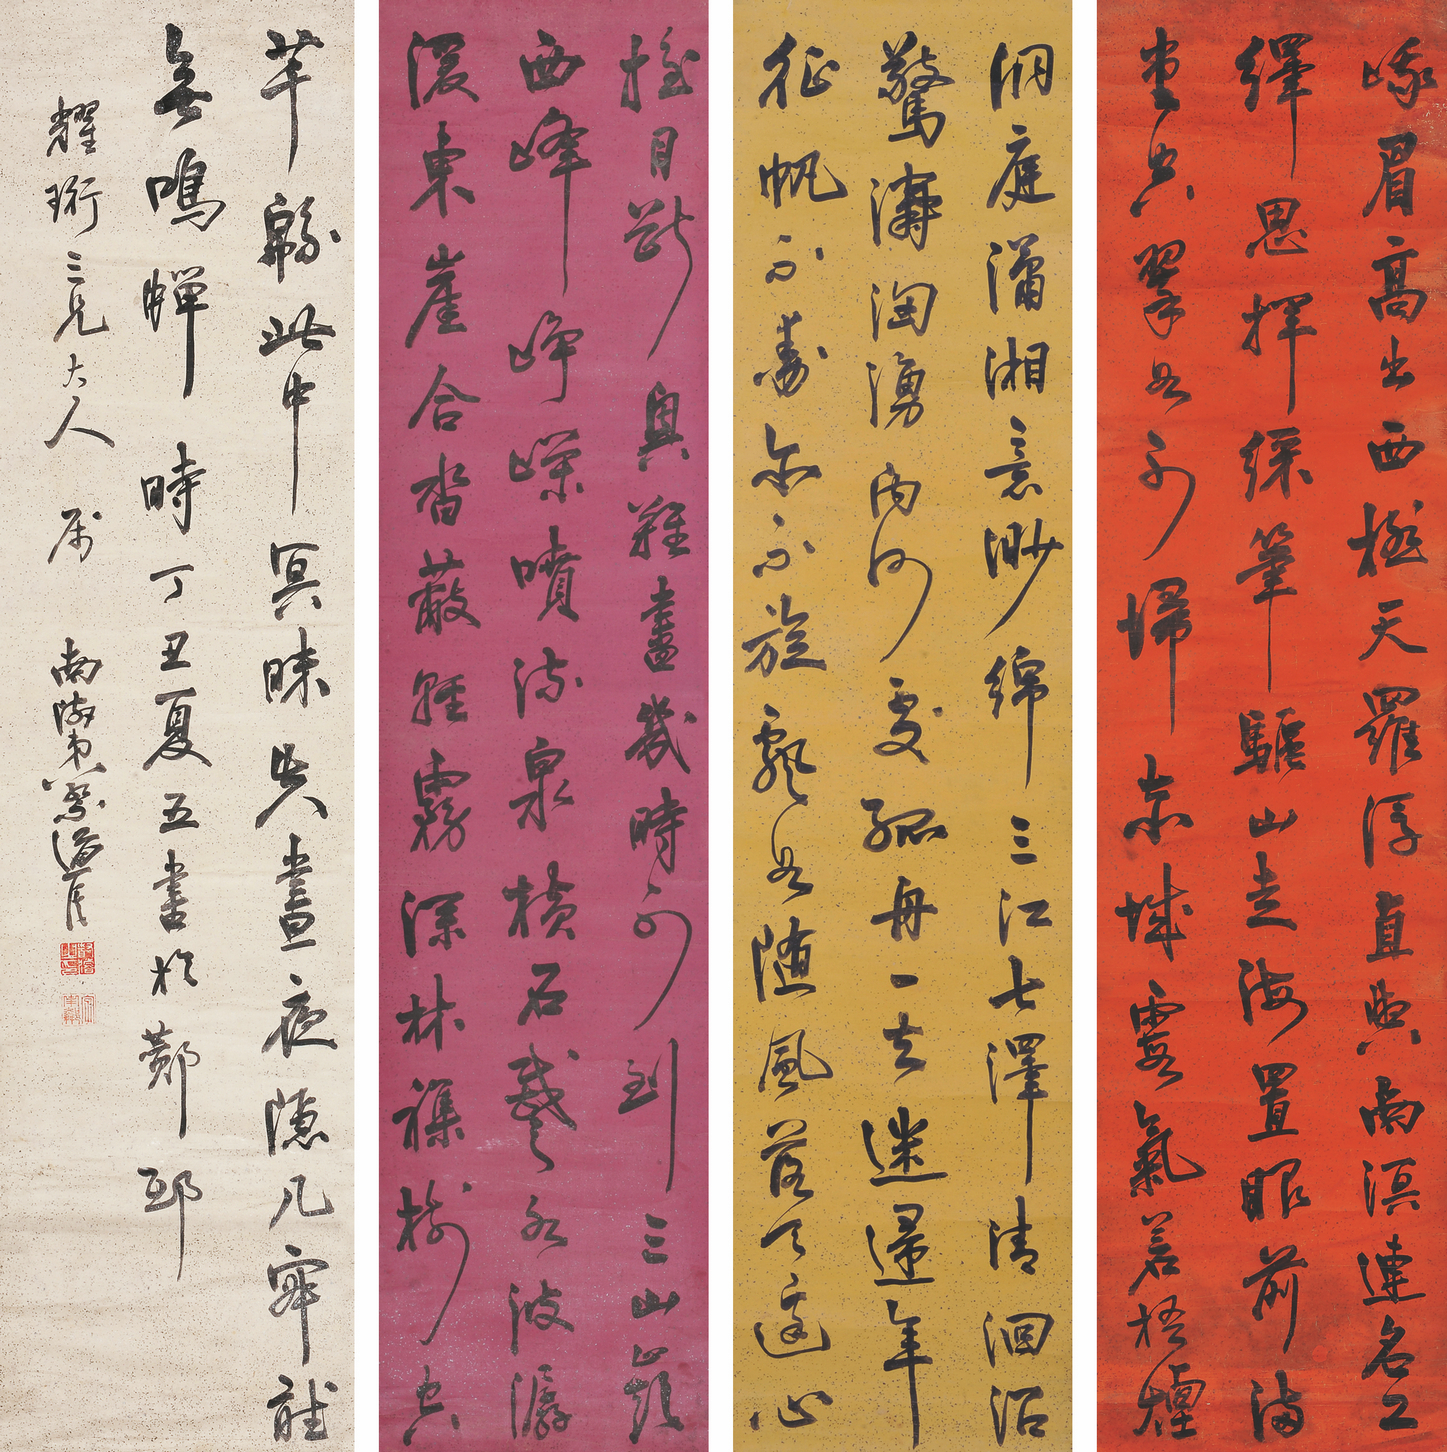 峨眉高出西極天羅浮直與南溟連名工
繹思揮綵筆驅山走海置眼前滿
堂空翠如可掃赤城霞氣蒼梧煙
洞庭瀟湘意渺綿三江七澤情洄沿
驚濤洶湧向何處孤舟一去迷歸年
征帆不動亦不旋飄如隨風落天邊心
搖目斷興難盡幾時可到三山巔
西峰崢嶸噴流泉橫石蹙水波潺
湲東崖合沓蔽輕霧深林雜樹空
芊緜此中冥昧失晝夜隱几寂聽
無鳴蟬 時丁丑夏五書於 邸
耀珩三兄大人 屬 南海弟